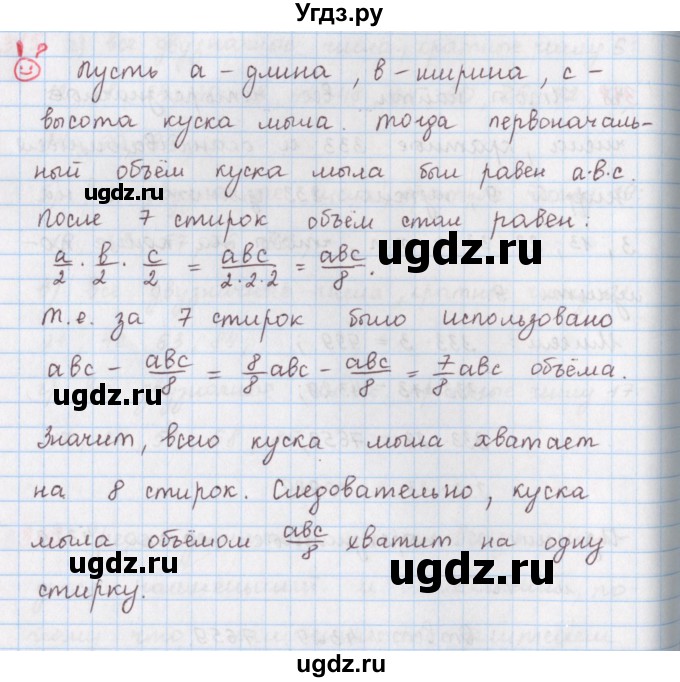 Угдз.ру
!?
Пусть а – длина, в – ширина, с –
высота куска мыла. Тогда первоначаль-
ный объём куска мыла был равен а·в·с.
После 7 стирок объём стал равен:
а/2 · в/2 · с/2 = авс/2·2·2 = авс/8.
Т.е. за 7 стирок было использовано
авс – авс/8 = 8/8 авс – авс/8 = 7/8 авс объёма.
Значит, всего куска мыла хватает
на 8 стирок. Следовательно, куска
мыла объёмом авс/8 хватит на одну
стирку.
ugdz.ru
ugdz.ru
ugdz.ru
ugdz.ru
ugdz.ru
ugdz.ru